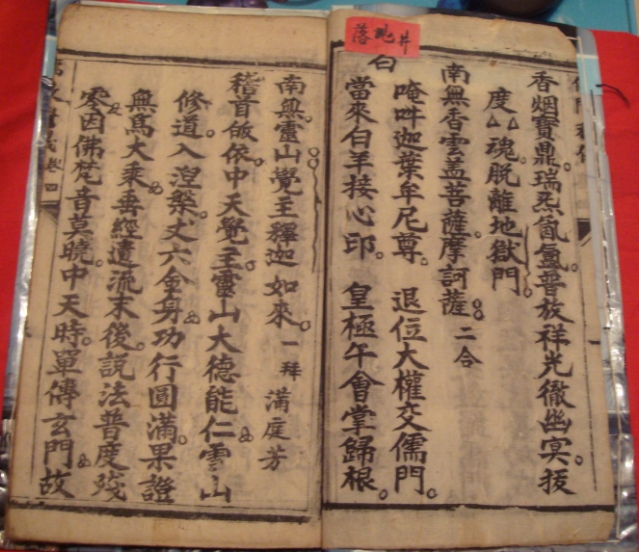 落
井
香烟寶鼎。瑞炁氤氳。普放祥光徹幽冥。拔
度△△魂脫離地獄門。
南無香雲蓋菩薩。摩訶薩。二合
唵吽迦葉牟尼尊。退位大權交儒門。
白
當來白羊接心印。皇極午會掌歸根。
南無靈山覺主釋迦如來。一拜 滿庭芳
稽首皈依。中天覺主。靈山大德能仁。雪山
修道入涅槃。丈六金身功行圓滿。果證
無爲大乘。垂經遺流末後。說法普度殘
零。因佛梵音莫曉。中天時。單傳玄門。故
卷四